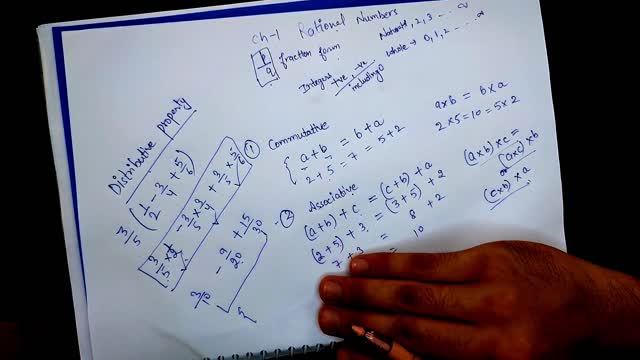 Ch-1 Rational Numbers
p/q fraction form
Natural 1, 2, 3 ... ∞
whole → 0, 1, 2 ... ∞
Integers +ve, -ve
including 0
① Commutative
a+b = b+a
2+5 = 7 = 5+2
a×b = b×a
2×5 = 10 = 5×2
② Associative
(a+b)+c = (c+b)+a
(2+5)+3 = (3+5)+2
7+3 = 8+2
= 10
(a×b)×c =
(a×c)×b
(c×b)×a
Distributive property
3/5 (1/2 - 3/4 + 5/6)
3/5 × 1/2 - 3/5 × 3/4 + 3/5 × 5/6
3/10 - 9/20 + 15/30